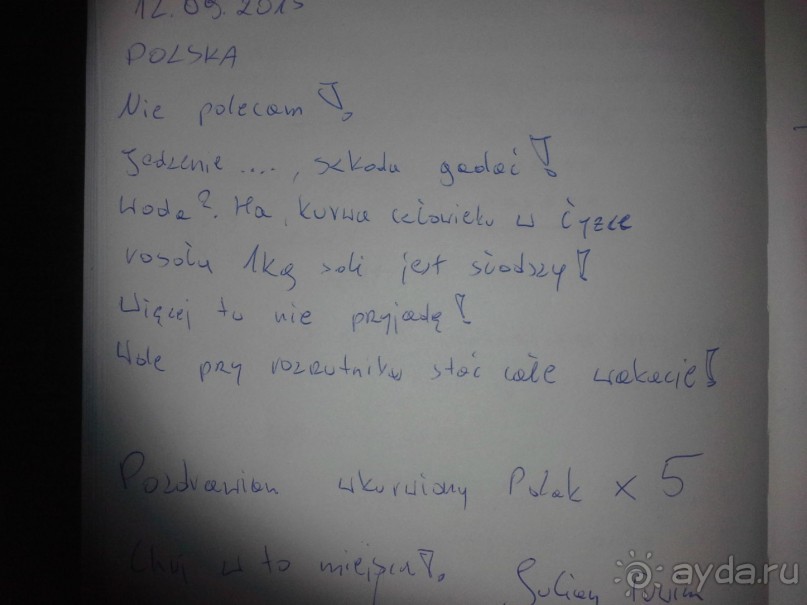 12.09.2013
POLSKA
Nie polecam!
Jedzenie ...., szkoda gadać!
Woda? Ha, kurwa człowieku w łyżce
rosołu 1kg soli jest słodszy!
Więcej tu nie przyjadę!
Wole przy rozrutniku stać całe wakacje!
Pozdrawiam wkurwiony Polak x 5
Chuj w to miejsce!. Julian
ayda.ru